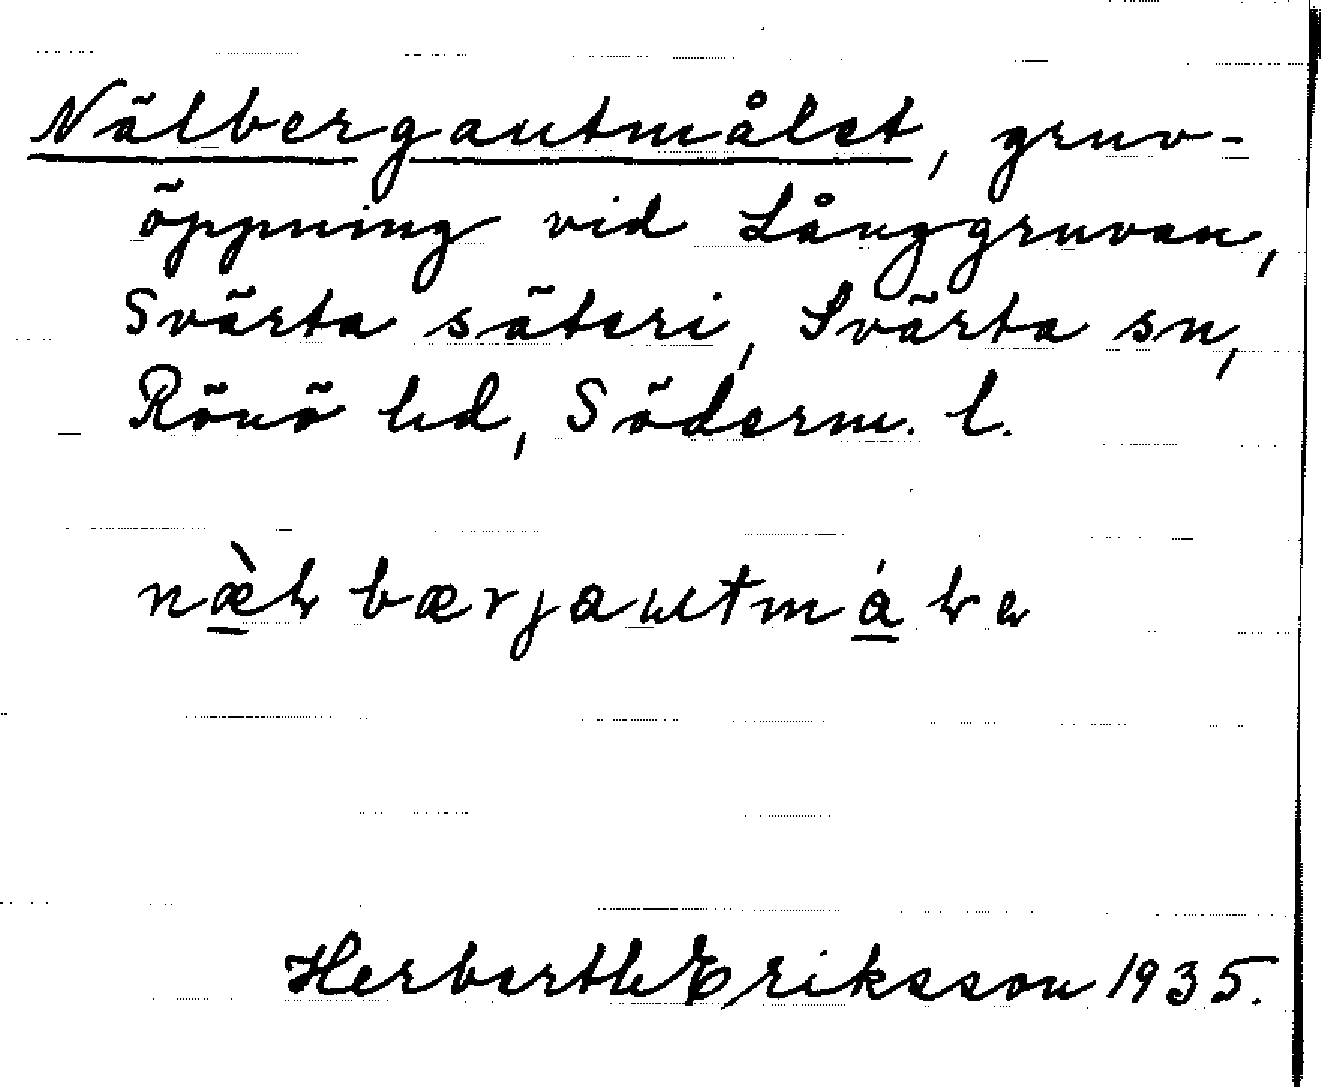 Nälbergautmålet, gruv-
öppning vid Långgruvan,
Svärta säteri, Svärta sn,
Rönö hd, Söderm. l.
Herberth Eriksson 1935.